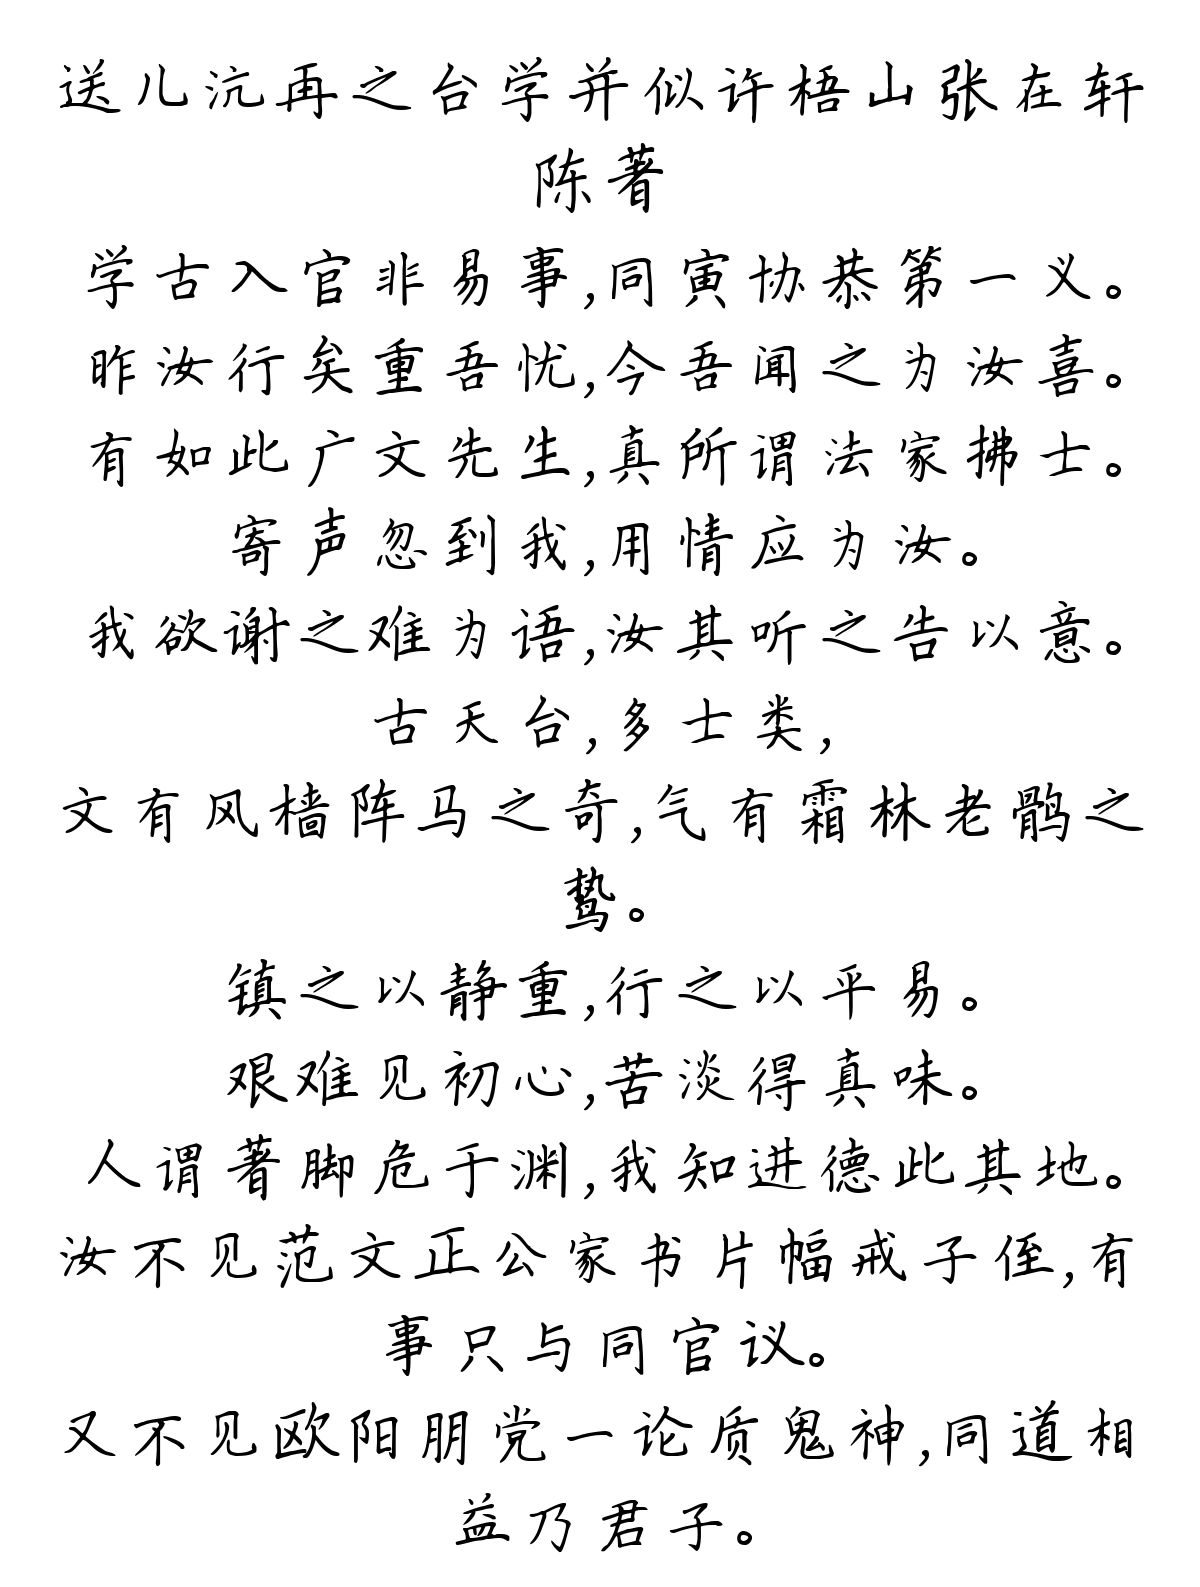 送儿沆再之台学并似许梧山张在轩
陈著
学古入官非易事,同寅协恭第一义。
昨汝行矣重吾忧,今吾闻之为汝喜。
有如此广文先生,真所谓法家拂士。
寄声忽到我,用情应为汝。
我欲谢之难为语,汝其听之告以意。
古天台,多士类,
文有风樯阵马之奇,气有霜林老鹘之
鸷。
镇之以静重,行之以平易。
艰难见初心,苦淡得真味。
人谓著脚危于渊,我知进德此其地。
汝不见范文正公家书片幅戒子侄,有
事只与同官议。
又不见欧阳朋党一论质鬼神,同道相
益乃君子。